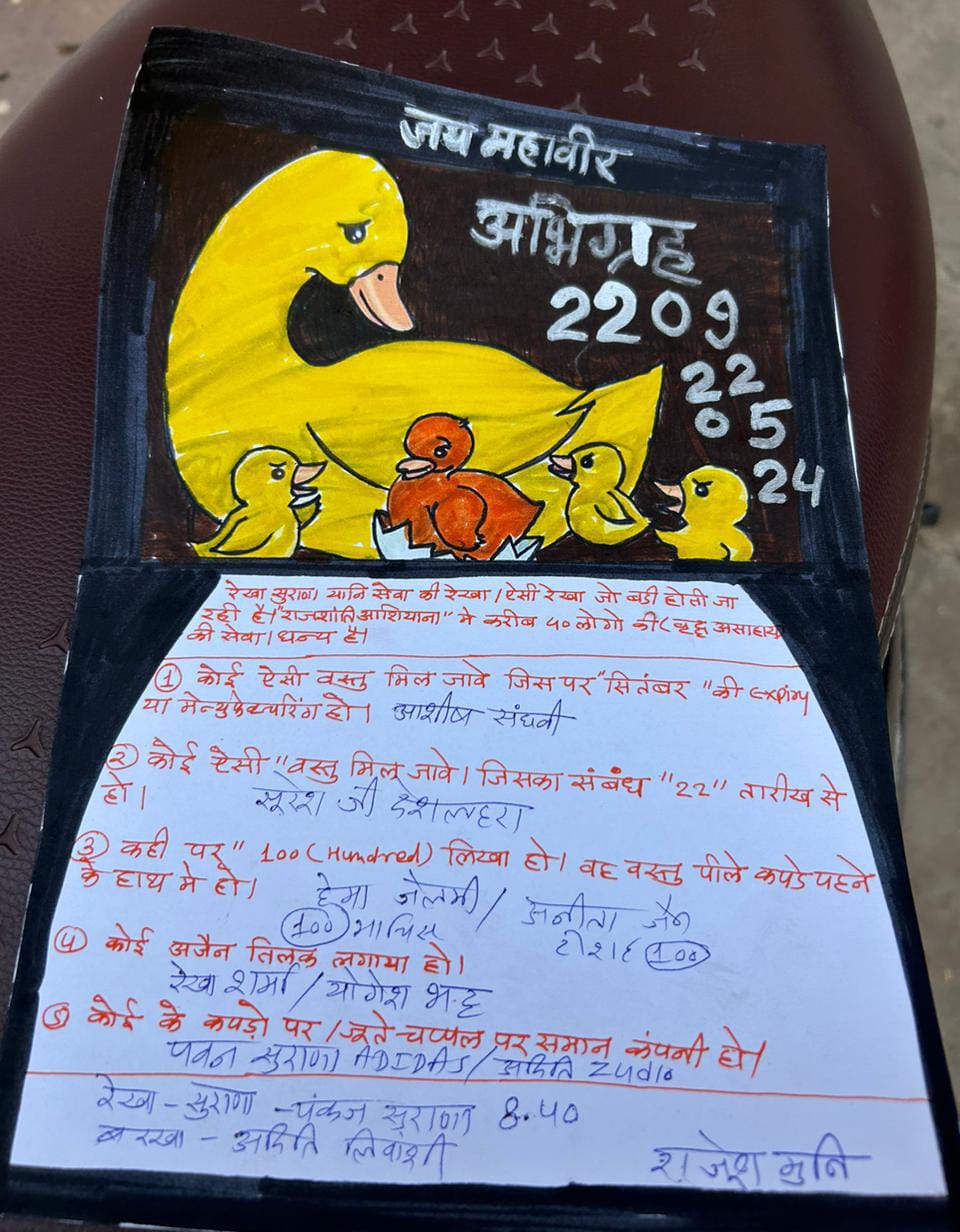 जय महावीर
अभिग्रह
2209
22
05
24
रेखा सुराणा यानि सेवा की रेखा। ऐसी रेखा जो बडी होती जा
रही है। "राजशांति आशियाना" मे करीब ५० लोगो की (वृद्ध असाहाय
की सेवा। धन्य है।
① कोई ऐसी वस्तु मिल जावे जिस पर "सितंबर" की Expiry
या मेन्युफेक्चरिंग हो। आशीष संघवी
② कोई ऐसी "वस्तु मिल जावे। जिसका संबंध "22" तारीख से
हो। सुरेश जी देशलहरा
③ कही पर" 100 (Hundred) लिखा हो। वह वस्तु पीले कपडे पहने
के हाथ मे हो। हेमा जेलमी / अनीता जैन
100 माचिस टीशर्ट 100
④ कोई अजैन तिलक लगाया हो।
रेखा शर्मा / योगेश भट्ट
⑤ कोई के कपड़ो पर / जूते-चप्पल पर समान कंपनी हो।
पवन सुराणा ADIDAS / अदिति Zudio
रेखा - सुराणा - पंकज सुराणा 8.40
बरखा - अदिति
राजेश मुनि